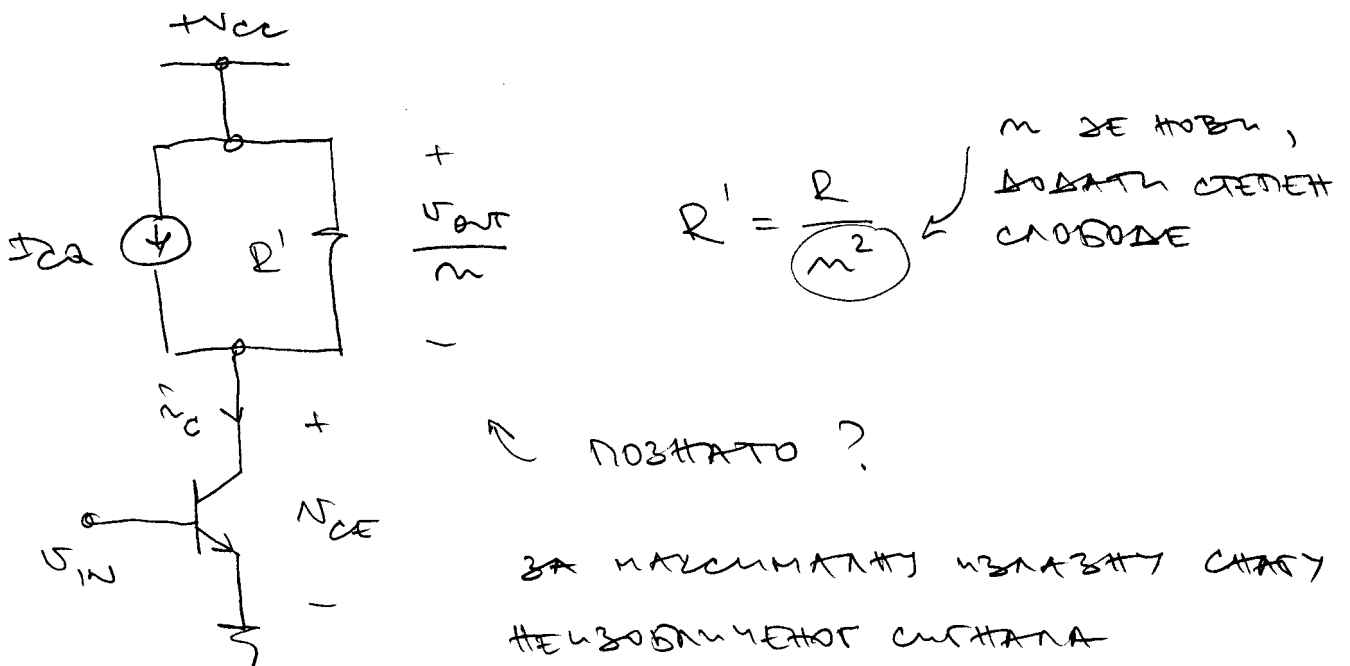 +VCC
ICQ
R'
+
vOUT
n
−
R' = R / n²
n ЈЕ НОВИ,
ДОДАТИ СТЕПЕН
СЛОБОДЕ
iC
+
vCE
−
vIN
ПОЗНАТО ?
ЗА МАКСИМАЛНУ ИЗЛАЗНУ СНАГУ
НЕИЗОБЛИЧЕНОГ СИГНАЛА